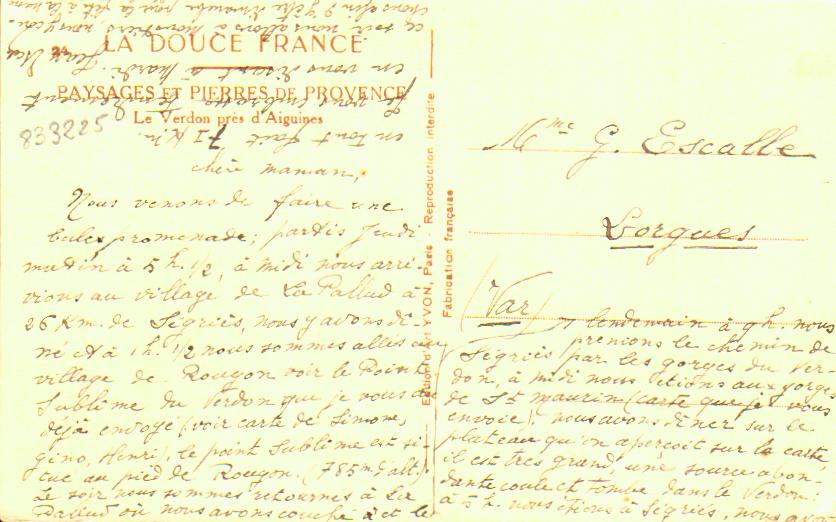 LA DOUCE FRANCE
PAYSAGES ET PIERRES DE PROVENCE
Le Verdon près d'Aiguines
833225
Chère maman,
Nous venons de faire une
belle promenade; partis Jeudi
matin à 5 h. 1/2, à midi nous arri-
vions au village de La Pallud à
26 Km. de Ségriès, nous y avons dî-
né et à 1 h. 1/2 nous sommes allés au
village de Rougon voir le Point
Sublime du Verdon que je vous ai
déjà envoyé (voir carte de Simone,
Gino, Henri), le point sublime est si-
tué au pied de Rougon. (785 m d'alt.).
Le soir nous sommes retournés à La
Pallud où nous avons couché et le
Edition d'art YVON, Paris - Reproduction interdite
Fabrication française
Mme G. Escalle
Lorgues
(Var)
lendemain à 9 h. nous
prenions le chemin de
Ségriès par les gorges du Ver-
don, à midi nous étions aux gorges
de St Maurin (carte que je vous
envoie), nous avons dîner sur le
plateau qu'on aperçoit sur la carte
il est très grand, une source abon-
dante coule et tombe dans le Verdon;
à 5 h. nous étions à Ségriès, nous avons
en tout fait 71 Km.
Je vous embrasse tendrement
en vous disant à mardi. Jean
ce soir nous allons à Moustiers, nous y cou-